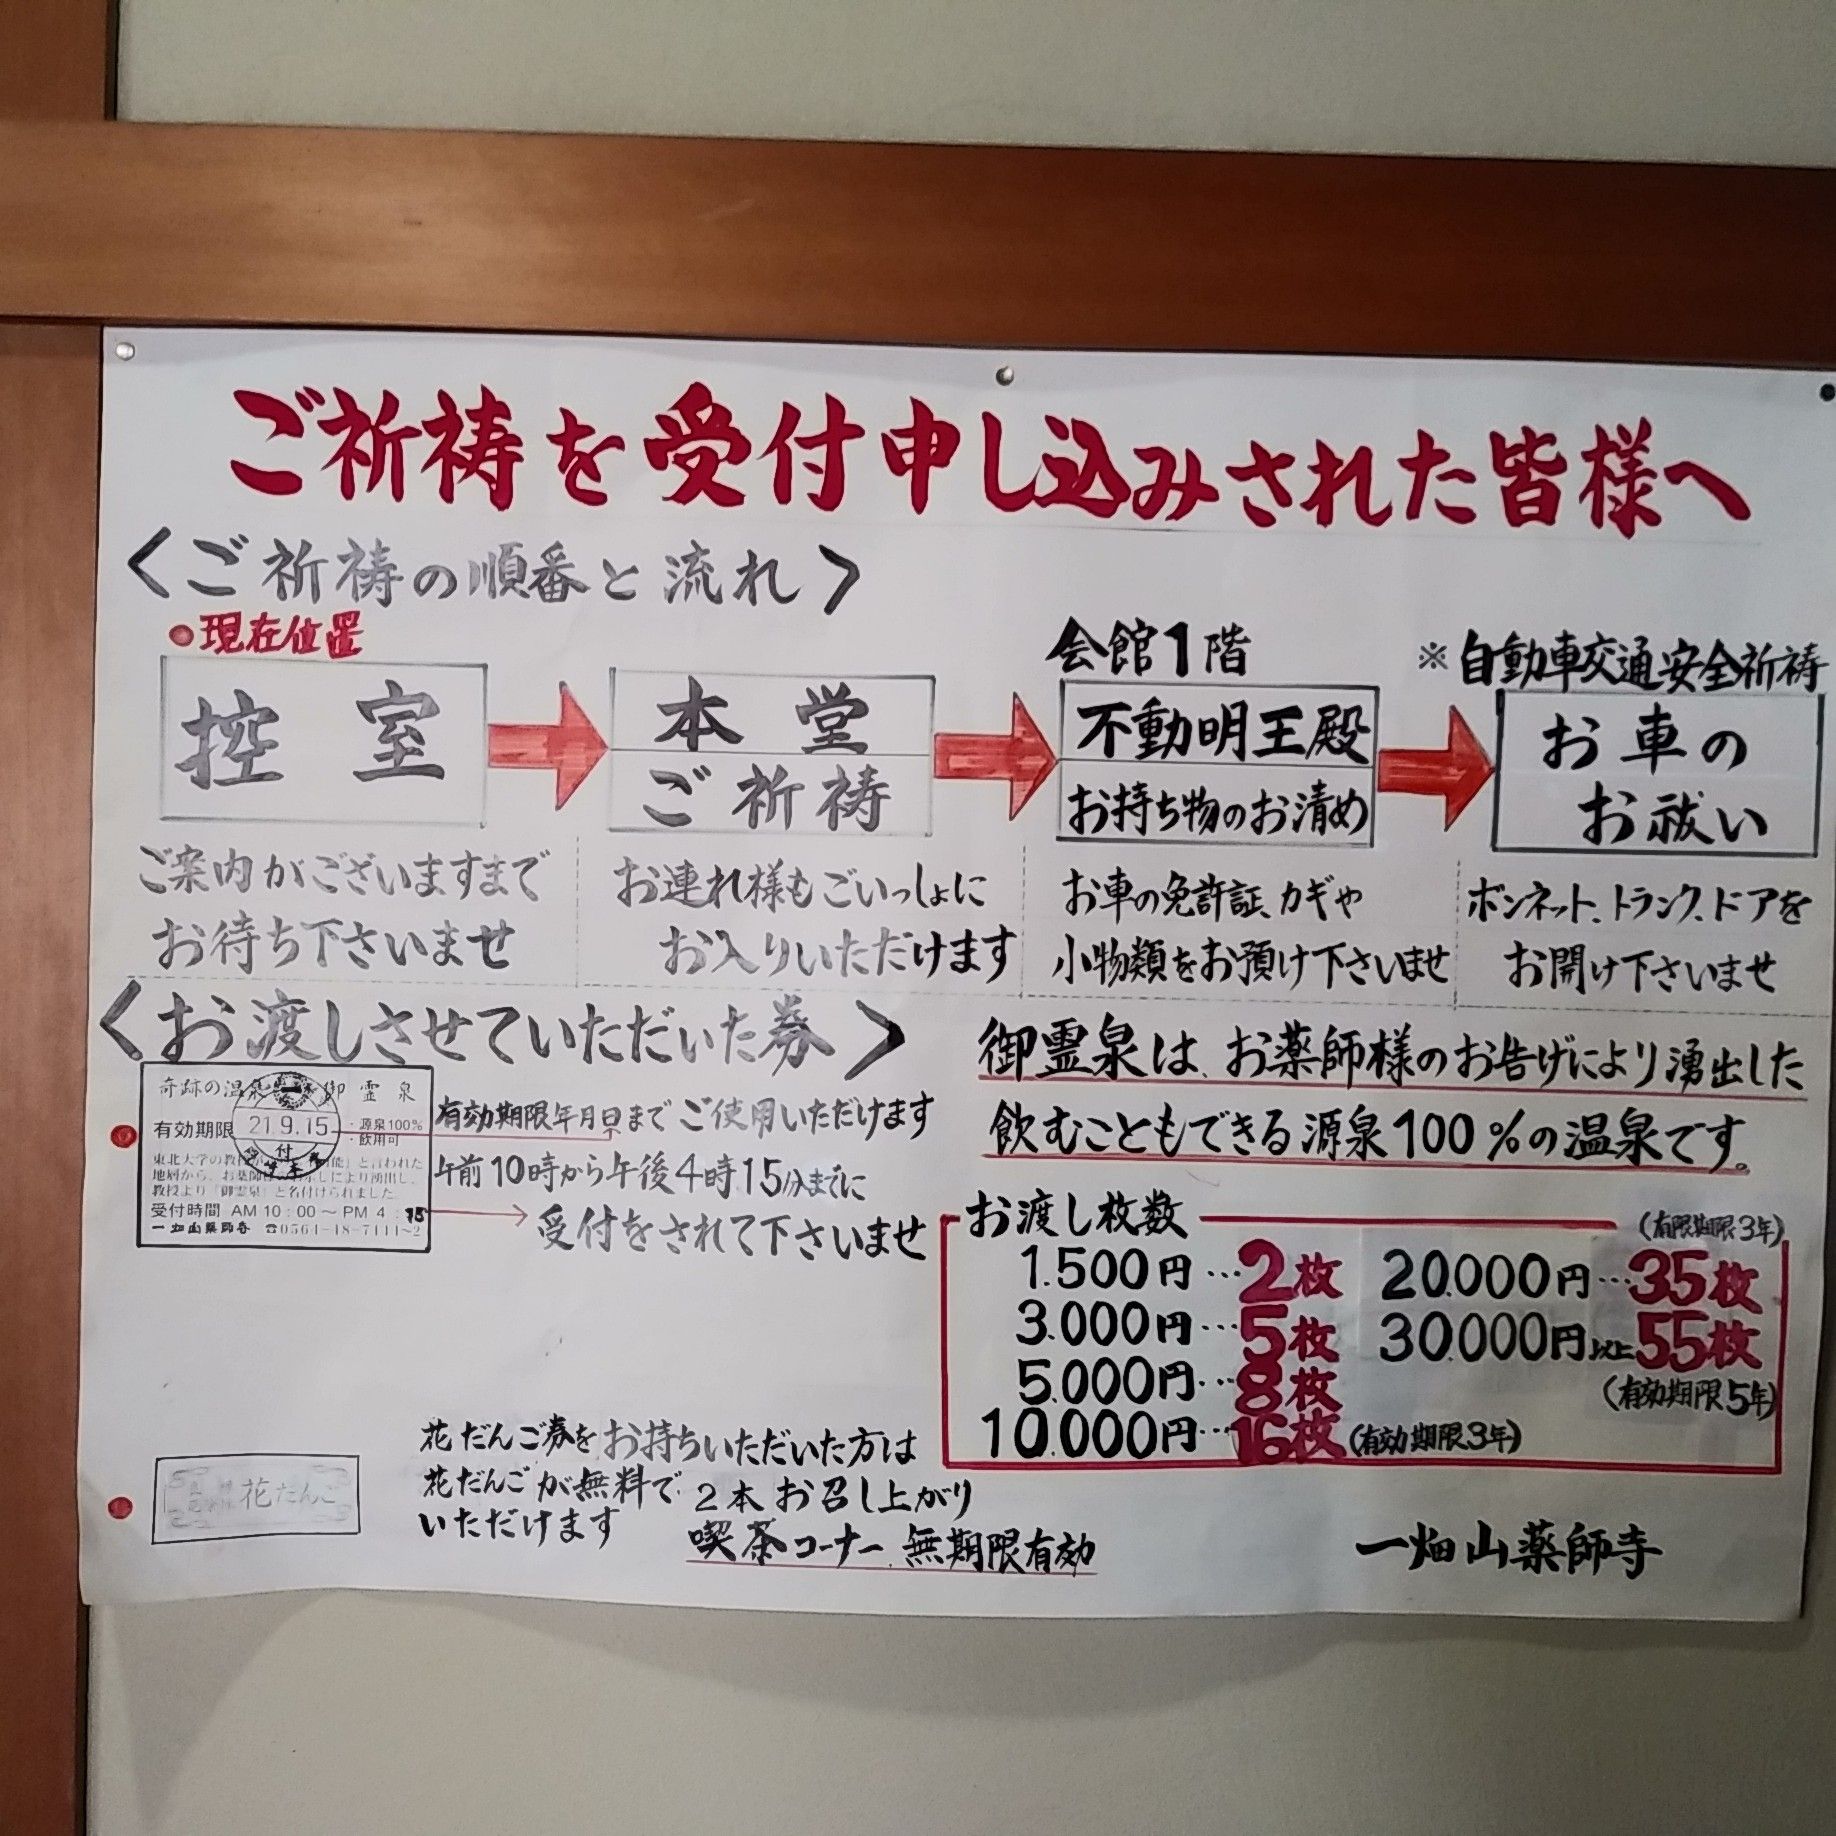 ご祈祷を受付申し込みされた皆様へ
＜ご祈祷の順番と流れ＞
●現在位置
控室
ご案内がございますまで
お待ち下さいませ
本堂
ご祈祷
お連れ様もごいっしょに
お入りいただけます
会館1階
不動明王殿
お持ち物のお清め
お車の免許証、カギや
小物類をお預け下さいませ
※自動車交通安全祈祷
お車の
お祓い
ボンネット、トランク、ドアを
お開け下さいませ
＜お渡しさせていただいた券＞
奇跡の温泉 御霊泉
有効期限 21.9.15 ・源泉100%
・飲用可
付
東北大学の教授 と言われた
地層から、お薬師 により湧出し、
教授より「御霊泉」と名付けられました。
受付時間 AM10:00～PM4:15
一畑山薬師寺 ☎0564-48-7111~2
有効期限年月日までご使用いただけます
午前10時から午後4時15分までに
受付をされて下さいませ
御霊泉は、お薬師様のお告げにより湧出した
飲むこともできる源泉100%の温泉です。
お渡し枚数
(有限期限3年)
1.500円…2枚 20.000円…35枚
3.000円…5枚 30.000円以上55枚
5.000円…8枚 (有効期限5年)
10.000円…16枚(有効期限3年)
花だんご
花だんご券をお持ちいただいた方は
花だんごが無料で、2本お召し上がり
いただけます
喫茶コーナー、無期限有効
一畑山薬師寺